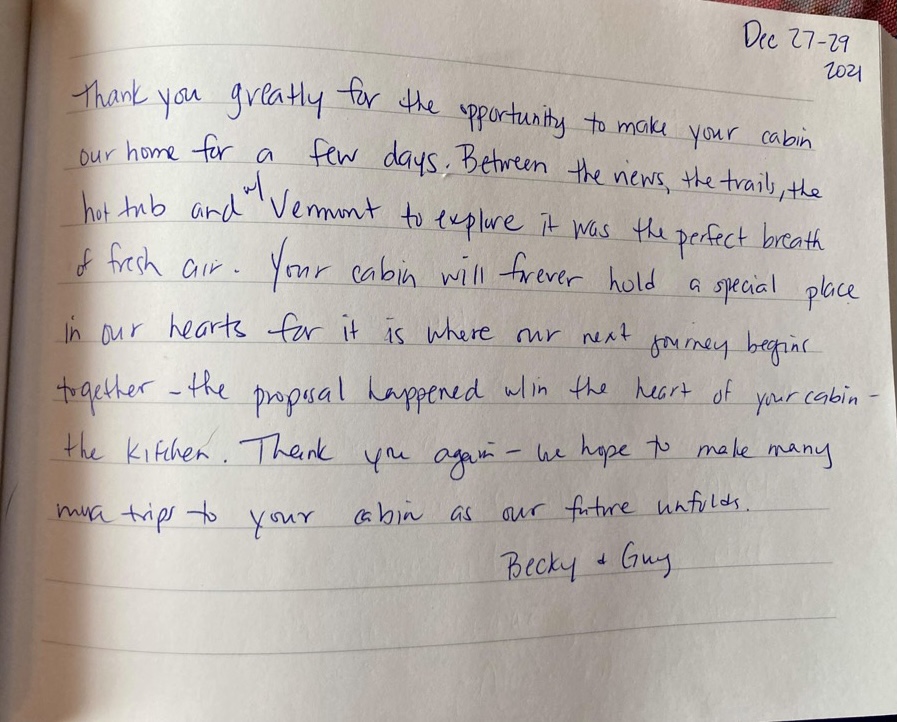 Dec 27-29
2021
Thank you greatly for the opportunity to make your cabin
our home for a few days. Between the views, the trails, the
hot tub and w/ Vermont to explore it was the perfect breath
of fresh air. Your cabin will forever hold a special place
in our hearts for it is where our next journey begins
together - the proposal happened w/in the heart of your cabin -
the kitchen. Thank you again - we hope to make many
more trips to your cabin as our future unfolds.
Becky & Guy